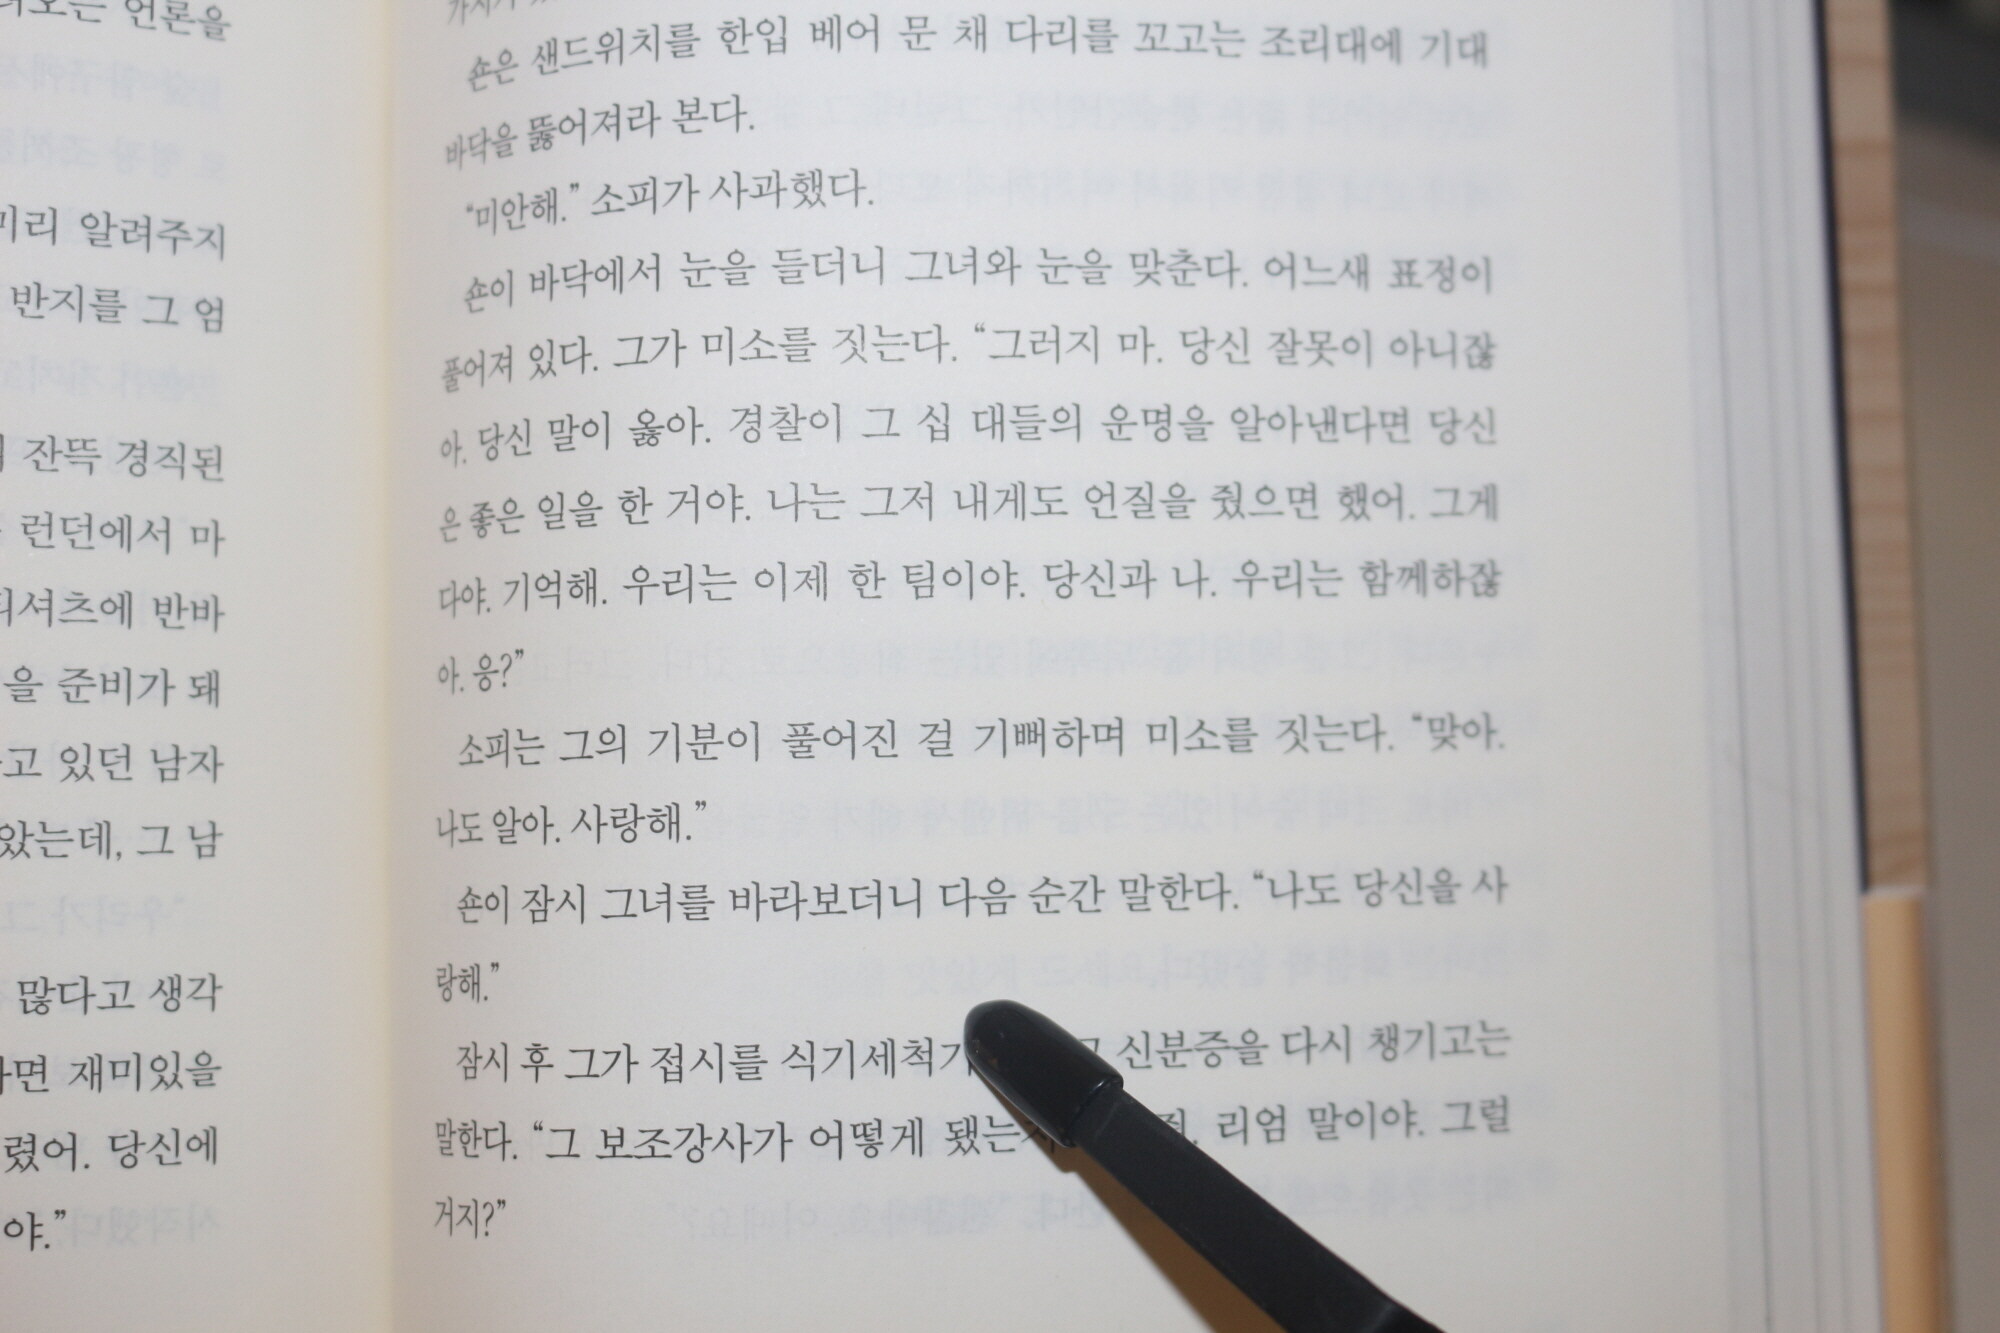 언론을
미리 알려주지
반지를 그 엄
잔뜩 경직된
런던에서 마
티셔츠에 반바
을 준비가 돼
고 있던 남자
았는데, 그 남
많다고 생각
면 재미있을
렸어. 당신에
야.”
숀은 샌드위치를 한입 베어 문 채 다리를 꼬고는 조리대에 기대
바닥을 뚫어져라 본다.
“미안해.” 소피가 사과했다.
숀이 바닥에서 눈을 들더니 그녀와 눈을 맞춘다. 어느새 표정이
풀어져 있다. 그가 미소를 짓는다. “그러지 마. 당신 잘못이 아니잖
아. 당신 말이 옳아. 경찰이 그 십 대들의 운명을 알아낸다면 당신
은 좋은 일을 한 거야. 나는 그저 내게도 언질을 줬으면 했어. 그게
다야. 기억해. 우리는 이제 한 팀이야. 당신과 나. 우리는 함께하잖
아. 응?”
소피는 그의 기분이 풀어진 걸 기뻐하며 미소를 짓는다. “맞아.
나도 알아. 사랑해.”
숀이 잠시 그녀를 바라보더니 다음 순간 말한다. “나도 당신을 사
랑해.”
잠시 후 그가 접시를 식기세척기 신분증을 다시 챙기고는
말한다. “그 보조강사가 어떻게 됐는지 리엄 말이야. 그럴
거지?”